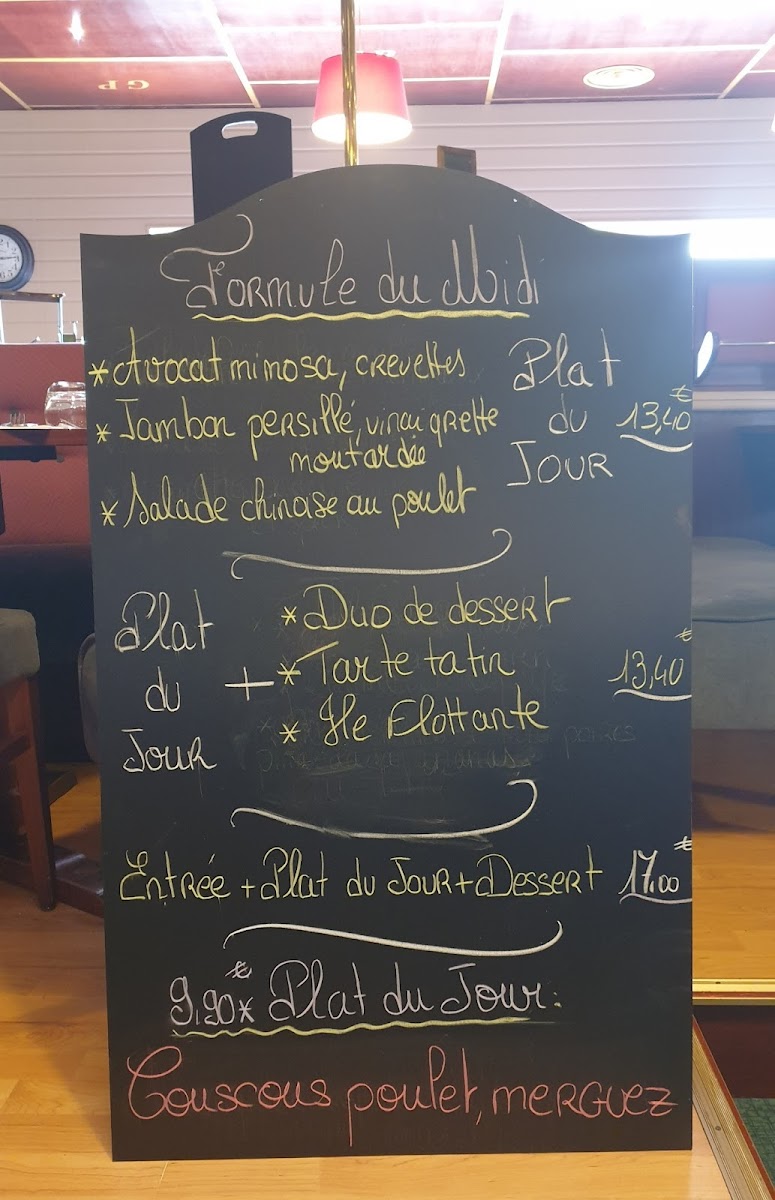 Formule du Midi
* Avocat mimosa, crevettes
* Jambon persillé, vinaigrette
moutardée
* Salade chinoise au poulet
Plat
du
Jour
13,40 €
Plat
du
Jour
+
* Duo de dessert
* Tarte tatin
* Ile Flottante
13,40 €
Entrée + Plat du Jour + Dessert 17.00 €
9,90 €* Plat du Jour:
Couscous poulet, merguez